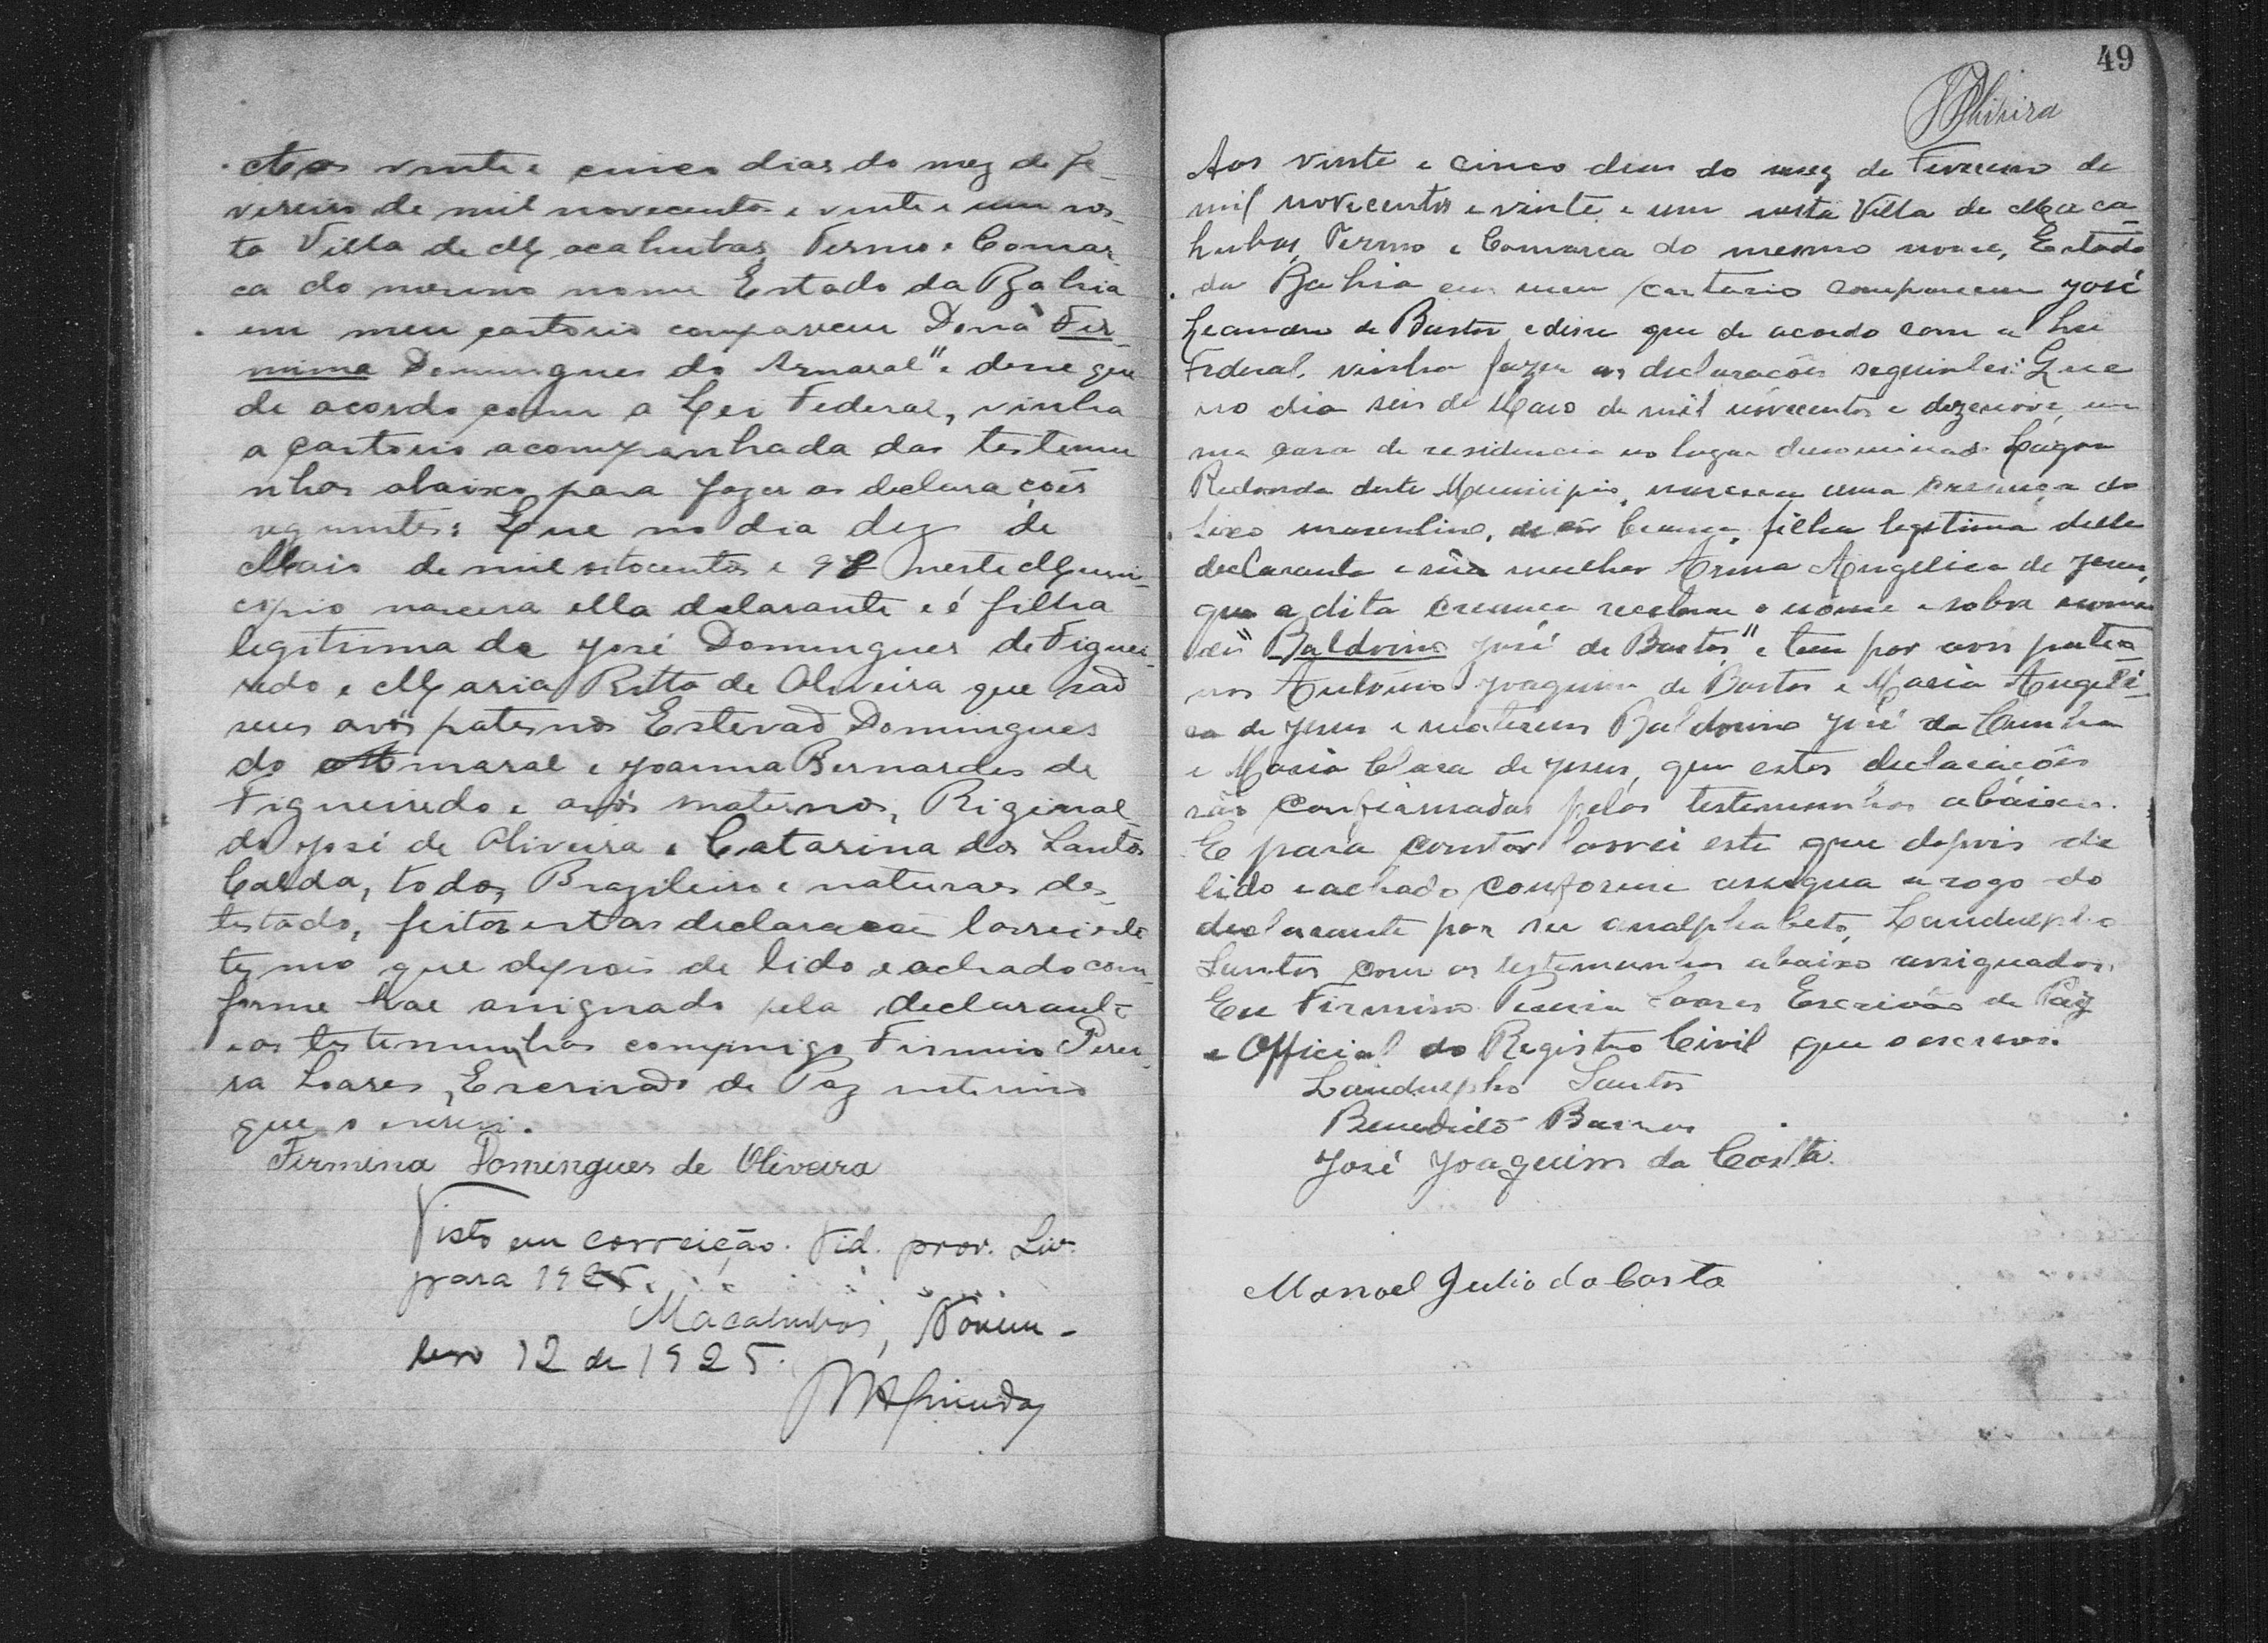 Aos vinte e cinco dias do mez de Fe-
vereiro de mil novecentos e vinte e um nes-
ta Villa de Macahubas, Termo e Comar-
ca do mesmo nome Estado da Bahia
em meu cartorio compareceu Dona "Fir-
mina Domingues do Amaral" e disse que
de acordo com a Lei Federal, vinha
a cartorio acompanhada das testemu
nhas abaixo para fazer as declarações
seguintes: Que no dia dez de
Maio de mil oitocentos e 98 neste Muni-
cipio nascera ella declarante e é filha
legitima de José Domingues de Figuei-
redo e Maria Ritta de Oliveira que são
seus avós paternos Estevão Domingues
do Amaral e Joanna Bernardes de
Figueiredo e avós maternos, Riginal-
do José de Oliveira e Catarina dos Santos
Calda, todos Brazileiro e naturaes des-
te Estado, feitos estas declaracoe lavrei este
termo que depois de lido e achado com-
forme vae assignado pela declarante
e as testemunhas commigo Firmino Perei-
ra Soares, Escrivão de Paz interino
que o escrevi.
Firmina Domingues de Oliveira
Visto em correição. Vid. prov. Liv.
para 1925.
Macahubas, Novem-
bro 12 de 1925.
49
Oliveira
Aos vinte e cinco dias do mez de Fevereiro de
mil novecentos e vinte e um nesta Villa de Maca-
hubas, Termo e Comarca do mesmo nome, Estado
da Bahia em meu cartorio compareceu José
Leandro de Bastos e disse que de acordo com a Lei
Federal, vinha fazer as declarações seguintes: Que
no dia seis de Maio de mil novecentos e dezenove, em
sua casa de residencia no lugar denominado Lagoa
Redonda deste Municipio, nasceu uma creança do
sexo masculino, de côr branca, filha legitima delle
declarante e sua mulher Anna Angelica de Jesus,
que a dita creança recebeu o nome e sobre nome
de "Baldoino José de Bastos" e tem por avos pater-
nos Antonio Joaquim de Bastos e Maria Angeli-
ca de Jesus e maternos Baldoino José da Cunha
e Maria Clara de Jesus, que estas declarações
são confirmadas pelas testemunhas abaixo.
E para constar lavrei este que depois de
lido e achado conforme assigna a rogo do
declarante por ser analphabeto, Landulpho
Santos com as testemunhas abaixo assignadas.
Eu Firmino Pereira Soares Escrivão de Paz
e Official do Registro Civil que o escrevi.
Landulpho Santos
Benedicto Barros
José Joaquim da Costa.
Manoel Julio da Costa